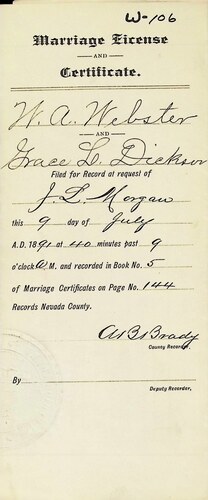 W-106
Marriage License
—AND—
Certificate.
W. A. Webster
—AND—
Grace L. Dickson
Filed for Record at request of
J. L. Morgan
this 9 day of July
A.D. 1891 at 40 minutes past 9
o'clock A.M, and recorded in Book No. 5
of Marriage Certificates on Page No. 144
Records Nevada County.
A B Brady
County Recorder.
By
Deputy Recorder,